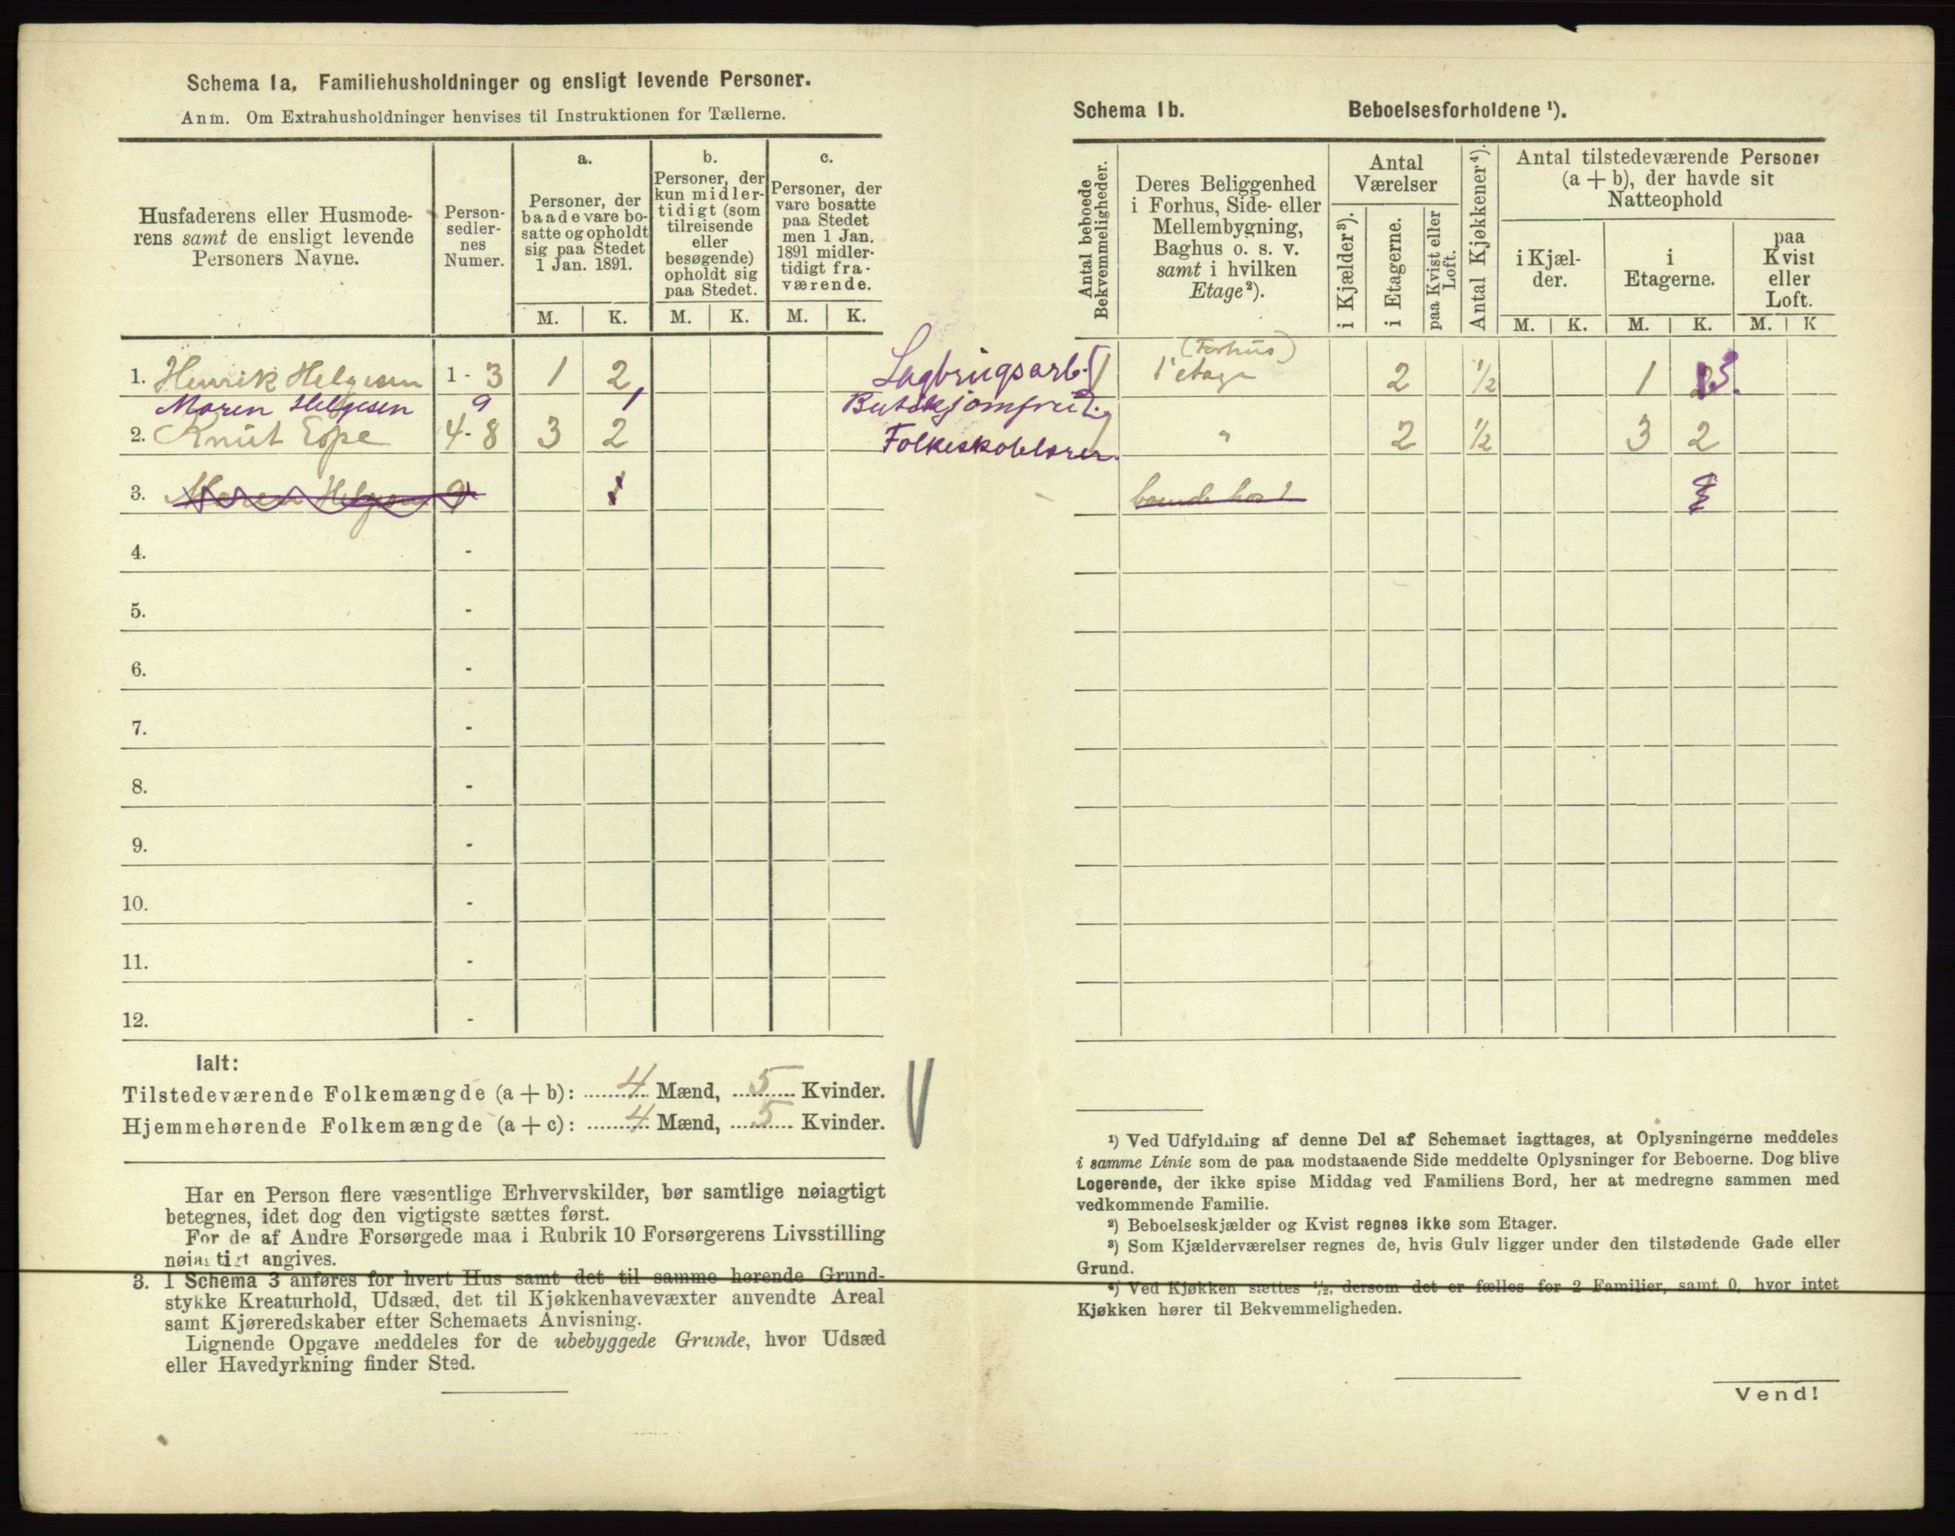 Schema 1a. Familiehusholdninger og ensligt levende Personer.
Anm. Om Extrahusholdninger henvises til Instruktionen for Tællerne.
Husfaderens eller Husmode-
rens samt de ensligt levende
Personers Navne.
Person-
sedler-
nes
Numer.
a.
Personer, der
baade vare bo-
satte og opholdt
sig paa Stedet
1 Jan. 1891.
b.
Personer, der
kun midler-
tidigt (som
tilreisende
eller
besøgende)
opholdt sig
paa Stedet.
c.
Personer, der
vare bosatte
paa Stedet
men 1 Jan.
1891 midler-
tidigt fra-
værende.
M. K. M. K. M. K.
1. Henrik Helgesen 1 - 3 1 2
Maren Helgesen 9 1
2. Knut Espe 4 - 8 3 2
3. Maren Helgesen 9 1
4. -
5. -
6. -
7. -
8. -
9. -
10. -
11. -
12. -
Ialt:
Tilstedeværende Folkemængde (a + b): 4 Mænd, 5 Kvinder.
Hjemmehørende Folkemængde (a + c): 4 Mænd, 5 Kvinder.
Har en Person flere væsentlige Erhvervskilder, bør samtlige nøiagtigt
betegnes, idet dog den vigtigste sættes først.
For de af Andre Forsørgede maa i Rubrik 10 Forsørgerens Livsstilling
nøiagtigt angives.
3. I Schema 3 anføres for hvert Hus samt det til samme hørende Grund-
stykke Kreaturhold, Udsæd, det til Kjøkkenhavevæxter anvendte Areal
samt Kjøreredskaber efter Schemaets Anvisning.
Lignende Opgave meddeles for de ubebyggede Grunde, hvor Udsæd
eller Havedyrkning finder Sted.
Schema 1b. Beboelsesforholdene ¹).
Antal beboede
Bekvemmeligheder.
Deres Beliggenhed
i Forhus, Side- eller
Mellembygning,
Baghus o. s. v.
samt i hvilken
Etage²).
Antal
Værelser
i Kjælder³).
i Etagerne.
paa Kvist eller
Loft.
Antal Kjøkkener⁴).
Antal tilstedeværende Personer
(a + b), der havde sit
Natteophold
i Kjæl-
der.
i
Etagerne.
paa
Kvist
eller
Loft.
M. K. M. K. M. K
Sagbrugsarb. 1 (Forhus)
1 etage 2 ½ 1 3.
Butikjomfru
Folkeskolelærer. 1 " 2 ½ 3 2
boende hos 1
¹) Ved Udfyldning af denne Del af Schemaet iagttages, at Oplysningerne meddeles
i samme Linie som de paa modstaaende Side meddelte Oplysninger for Beboerne. Dog blive
Logerende, der ikke spise Middag ved Familiens Bord, her at medregne sammen med
vedkommende Familie.
²) Beboelseskjælder og Kvist regnes ikke som Etager.
³) Som Kjælderværelser regnes de, hvis Gulv ligger under den tilstødende Gade eller
Grund.
⁴) Ved Kjøkken sættes ½, dersom det er fælles for 2 Familier, samt 0, hvor intet
Kjøkken hører til Bekvemmeligheden.
Vend!